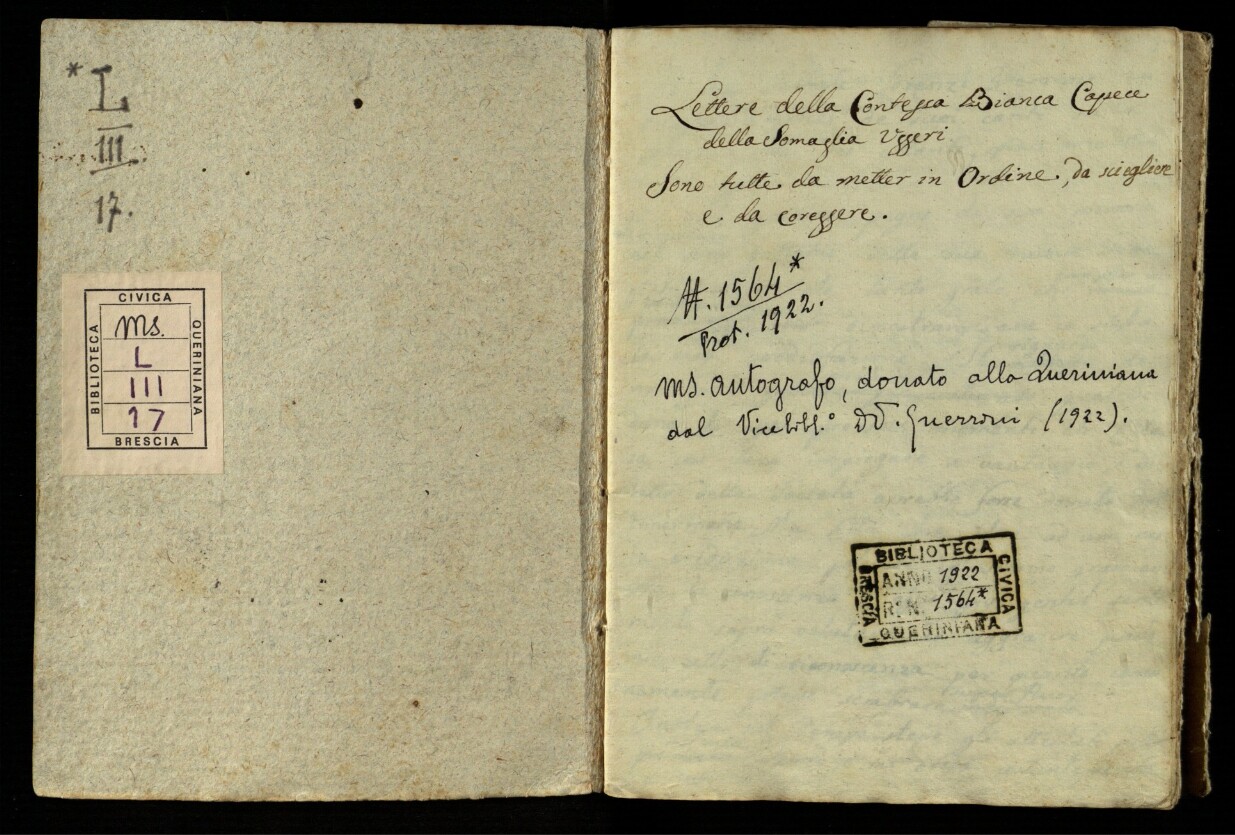 * L
III
17.
CIVICA
BIBLIOTECA
ms.
L
III
17
QUERINIANA
BRESCIA
Lettere della Contessa Bianca Capece
della Somaglia Uggeri
Sono tutte da metter in Ordine, da sciegliere
e da coreggere.
A. 1564*
Prot. 1922.
ms. autografo, donato alla Queriniana
dal Vicebibl.º Dº. Guerrini (1922).
BIBLIOTECA
BRESCIA
ANNO 1922
R. N. 1564*
CIVICA
QUERINIANA